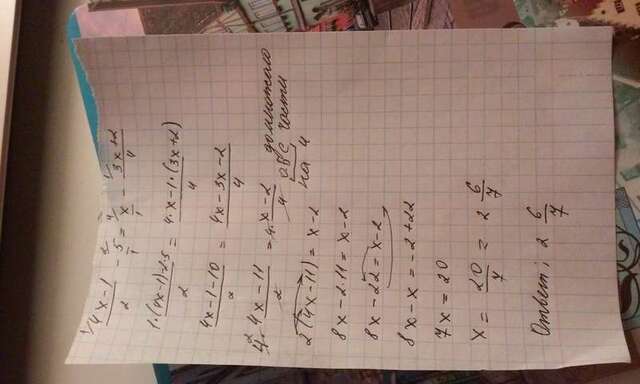 1/ 4x-1/2 - 2/ 5/1 = 4/ x/1 - 1/ 3x+2/4
1·(4x-1)-2·5/2 = 4·x-1·(3x+2)/4
4x-1-10/2 = 4x-3x-2/4
4·4x-11/2 = 4·x-2/4 домножаю
обе части
на 4
2(4x-11) = x-2
8x-2·11 = x-2
8x-22 = x-2
8x-x = -2+22
7x = 20
x = 20/7 = 2 6/7
Ответ: 2 6/7